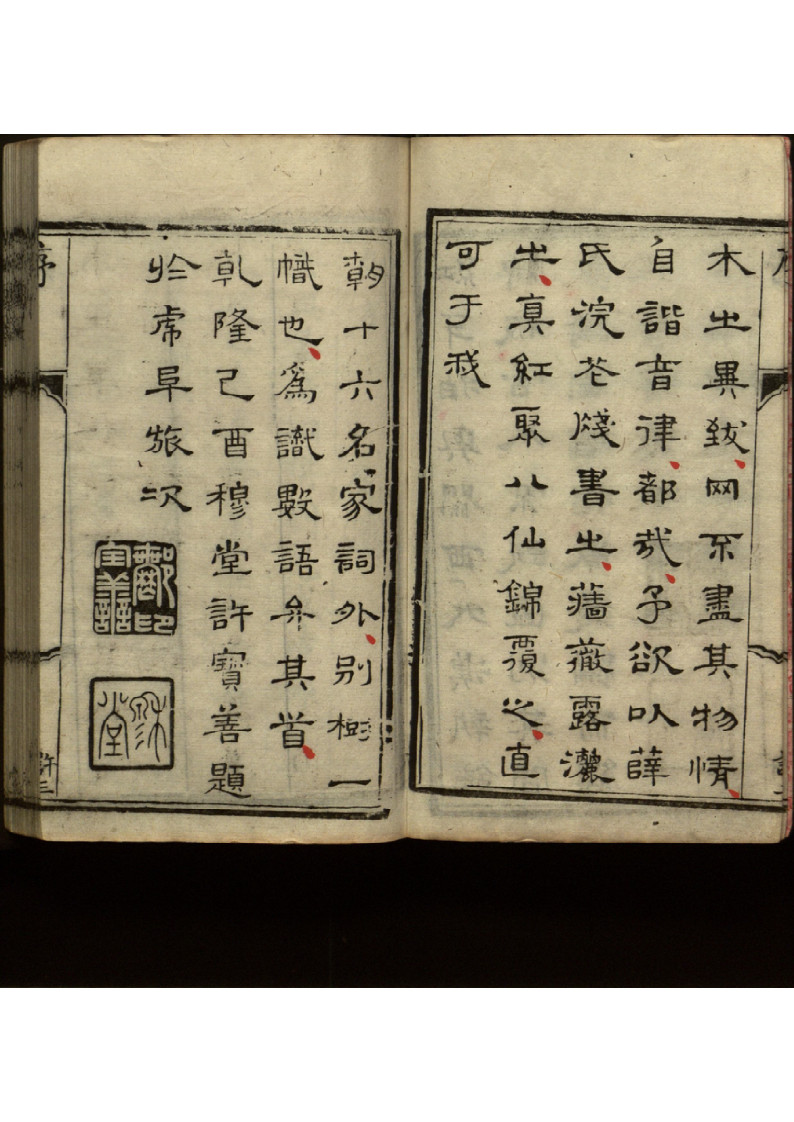 木之異致网不盡其物情
自諧音律都哉予欲以薛
氏浣花牋書之薔薇露灑
之真紅聚八仙錦覆之直
可于我
朝十六名家詞外別樹一
幟也為識數語弁其首
乾隆己酉穆堂許寶善題
於虎阜旅次
序
許三